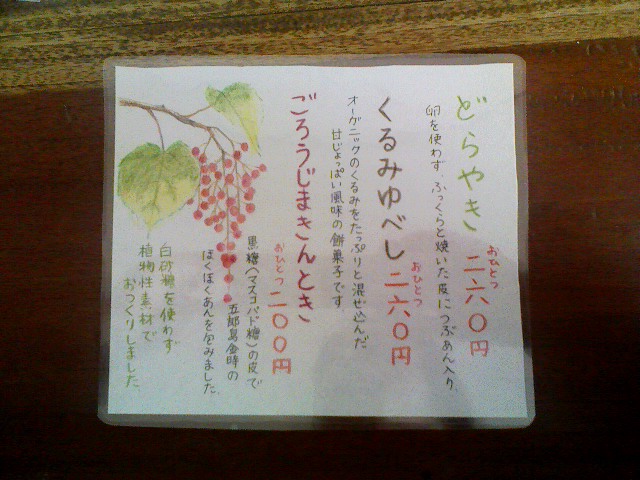 どらやき
おひとつ
二六〇円
卵を使わず、ふっくらと焼いた皮につぶあん入り。
くるみゆべし
おひとつ
二六〇円
オーガニックのくるみをたっぷりと混ぜ込んだ
甘じょっぱい風味の餅菓子です。
ごろうじまきんとき
おひとつ
二〇〇円
黒糖(マスコバド糖)の皮で
五郎島金時の
ほくほくあんを包みました。
白砂糖を使わず
植物性素材で
おつくりしました。